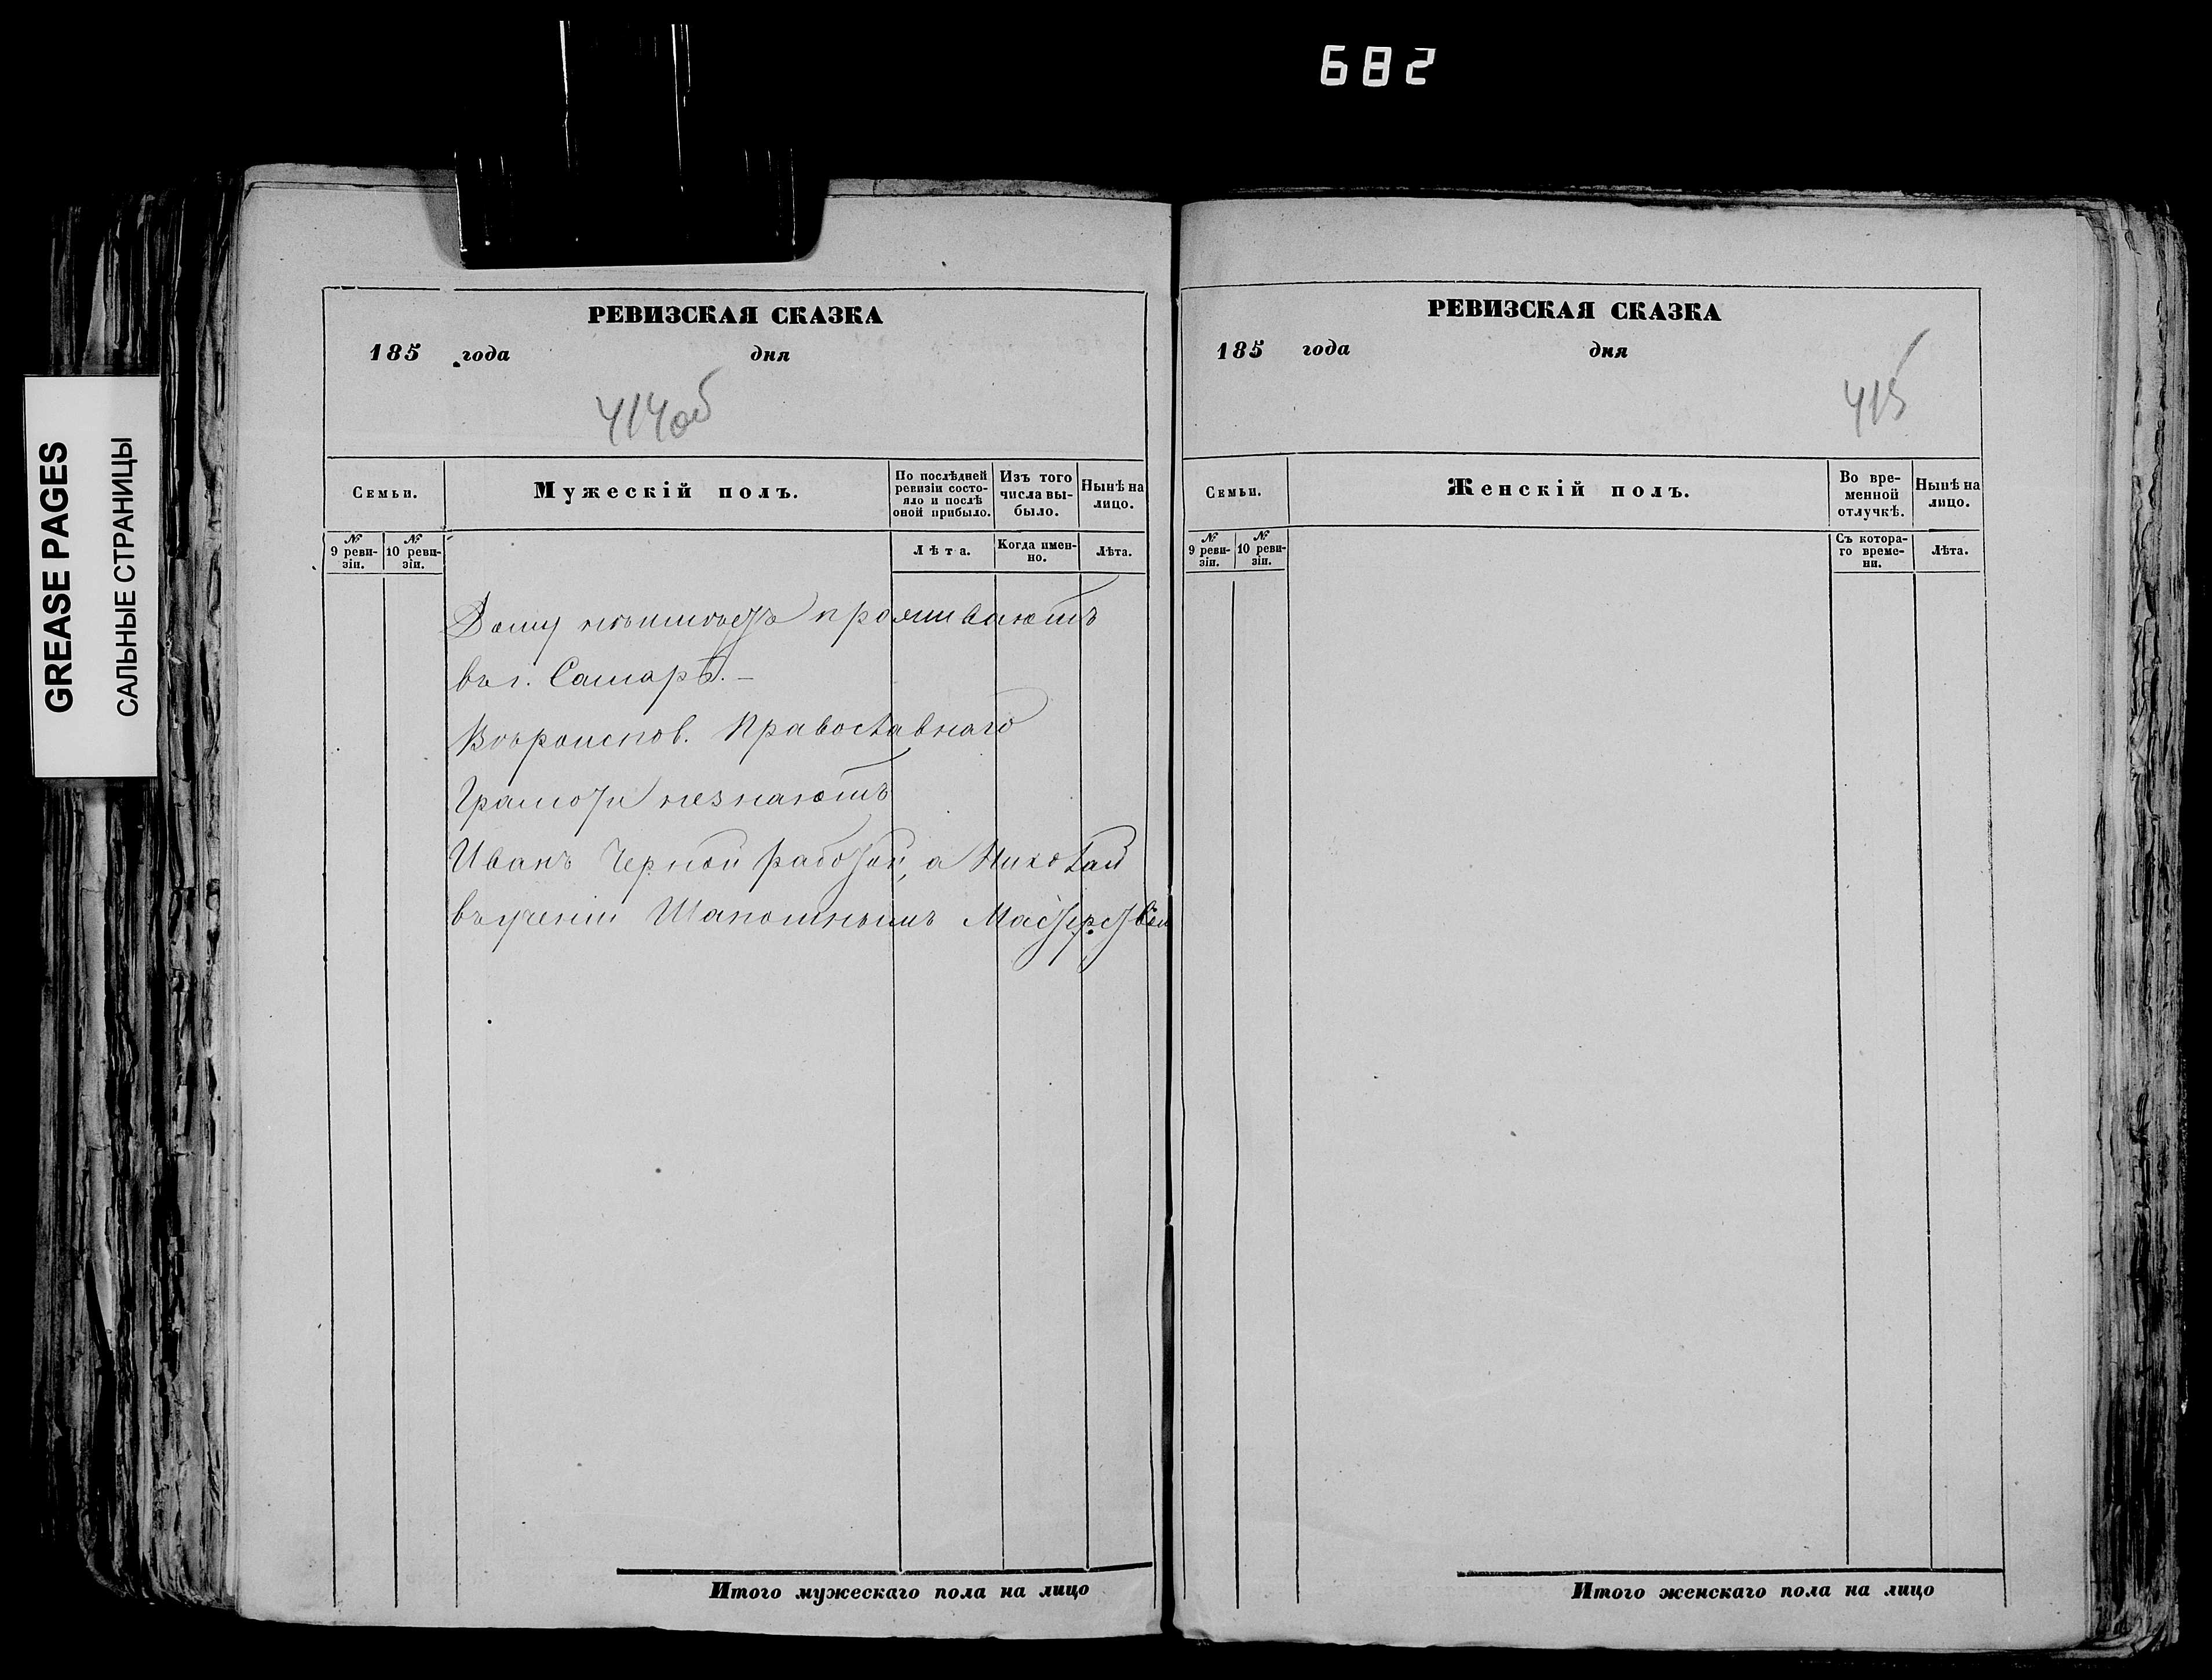 682
GREASE PAGES
САЛЬНЫЕ СТРАНИЦЫ
РЕВИЗСКАЯ СКАЗКА
185 года дня
414об
Семьи.
Мужескій полъ.
По послѣдней ревизіи состояло и послѣ оной прибыло.
Изъ того числа выбыло.
Нынѣ на лицо.
№ 9 ревизіи.
№ 10 ревизіи.
Лѣта.
Когда именно.
Лѣта.
Дому неимѣетъ проживаютъ
въ г. Самарѣ. –
Вѣроиспов. Православнаго
Грамоти незнаютъ
Иванъ Черной работой, а Николай
въ ученіи Шапошнымъ Мастерствѣ
Итого мужескаго пола на лицо
РЕВИЗСКАЯ СКАЗКА
185 года дня
415
Семьи.
Женскій полъ.
Во временной отлучкѣ.
Нынѣ на лицо.
№ 9 ревизіи.
№ 10 ревизіи.
Съ котораго времени.
Лѣта.
Итого женскаго пола на лицо